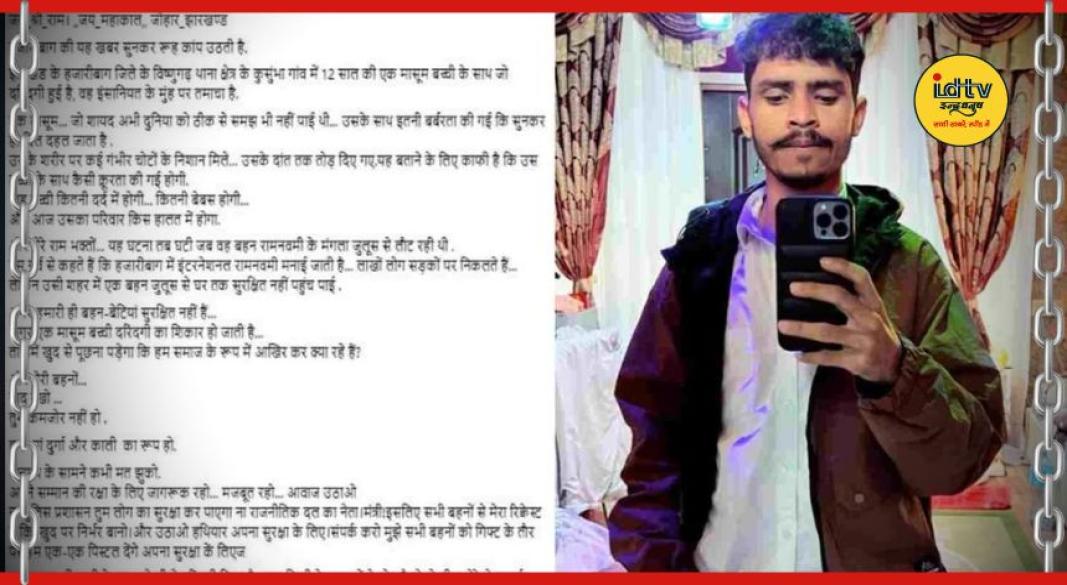 श्री_राम। ,,जय_महाकाल,, जोहार_झारखण्ड
बाग की यह खबर सुनकर रूह कांप उठती है.
के हजारीबाग जिले के विष्णुगढ़ थाना क्षेत्र के कुसुंभा गांव में 12 साल की एक मासूम बच्ची के साथ जो
हुई है, वह इंसानियत के मुंह पर तमाचा है.
जो शायद अभी दुनिया को ठीक से समझ भी नहीं पाई थी... उसके साथ इतनी बर्बरता की गई कि सुनकर
दहल जाता है .
के शरीर पर कई गंभीर चोटों के निशान मिले... उसके दांत तक तोड़ दिए गए,यह बताने के लिए काफी है कि उस
के साथ कैसी क्रूरता की गई होगी.
कितनी दर्द में होगी... कितनी बेबस होगी...
आज उसका परिवार किस हालत में होगा.
राम भक्तों... यह घटना तब घटी जब वह बहन रामनवमी के मंगला जुलूस से लौट रही थी .
से कहते हैं कि हजारीबाग में इंटरनेशनल रामनवमी मनाई जाती है... लाखों लोग सड़कों पर निकलते हैं...
उसी शहर में एक बहन जुलूस से घर तक सुरक्षित नहीं पहुंच पाई .
हमारी ही बहन-बेटियां सुरक्षित नहीं हैं...
एक मासूम बच्ची दरिंदगी का शिकार हो जाती है...
खुद से पूछना पड़ेगा कि हम समाज के रूप में आखिर कर क्या रहे हैं?
बहनों...
कमजोर नहीं हो .
दुर्गा और काली का रूप हो.
के सामने कभी मत झुको.
सम्मान की रक्षा के लिए जागरूक रहो... मजबूत रहो... आवाज उठाओ
प्रशासन तुम लोग का सुरक्षा कर पाएगा ना राजनीतिक दल का नेता।मंत्री।इसलिए सभी बहनों से मेरा रिक्वेस्ट
खुद पर निर्भर बानो।और उठाओ हथियार अपना सुरक्षा के लिए।संपर्क करो मुझे सभी बहनों को गिफ्ट के तौर
एक-एक पिस्टल देंगे अपना सुरक्षा के लिएज
ıdtv
इन्द्रधनुष
सच्ची खबरें, स्पीड में